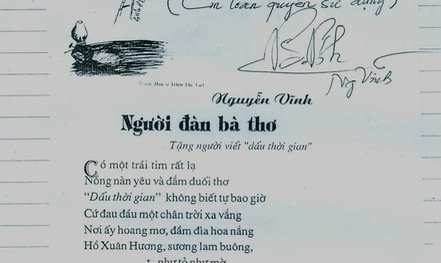 (Em toàn quyền sử dụng)
Ng Vĩnh
Nguyễn Vĩnh
Người đàn bà thơ
Tặng người viết "dấu thời gian"
Có một trái tim rất lạ
Nồng nàn yêu và đắm đuối thơ
"Dấu thời gian" không biết tự bao giờ
Cứ đau đáu một chân trời xa vắng
Nơi ấy hoang mơ, đầm đìa hoa nắng
Hồ Xuân Hương, sương lam buông,
như tỏ như mờ